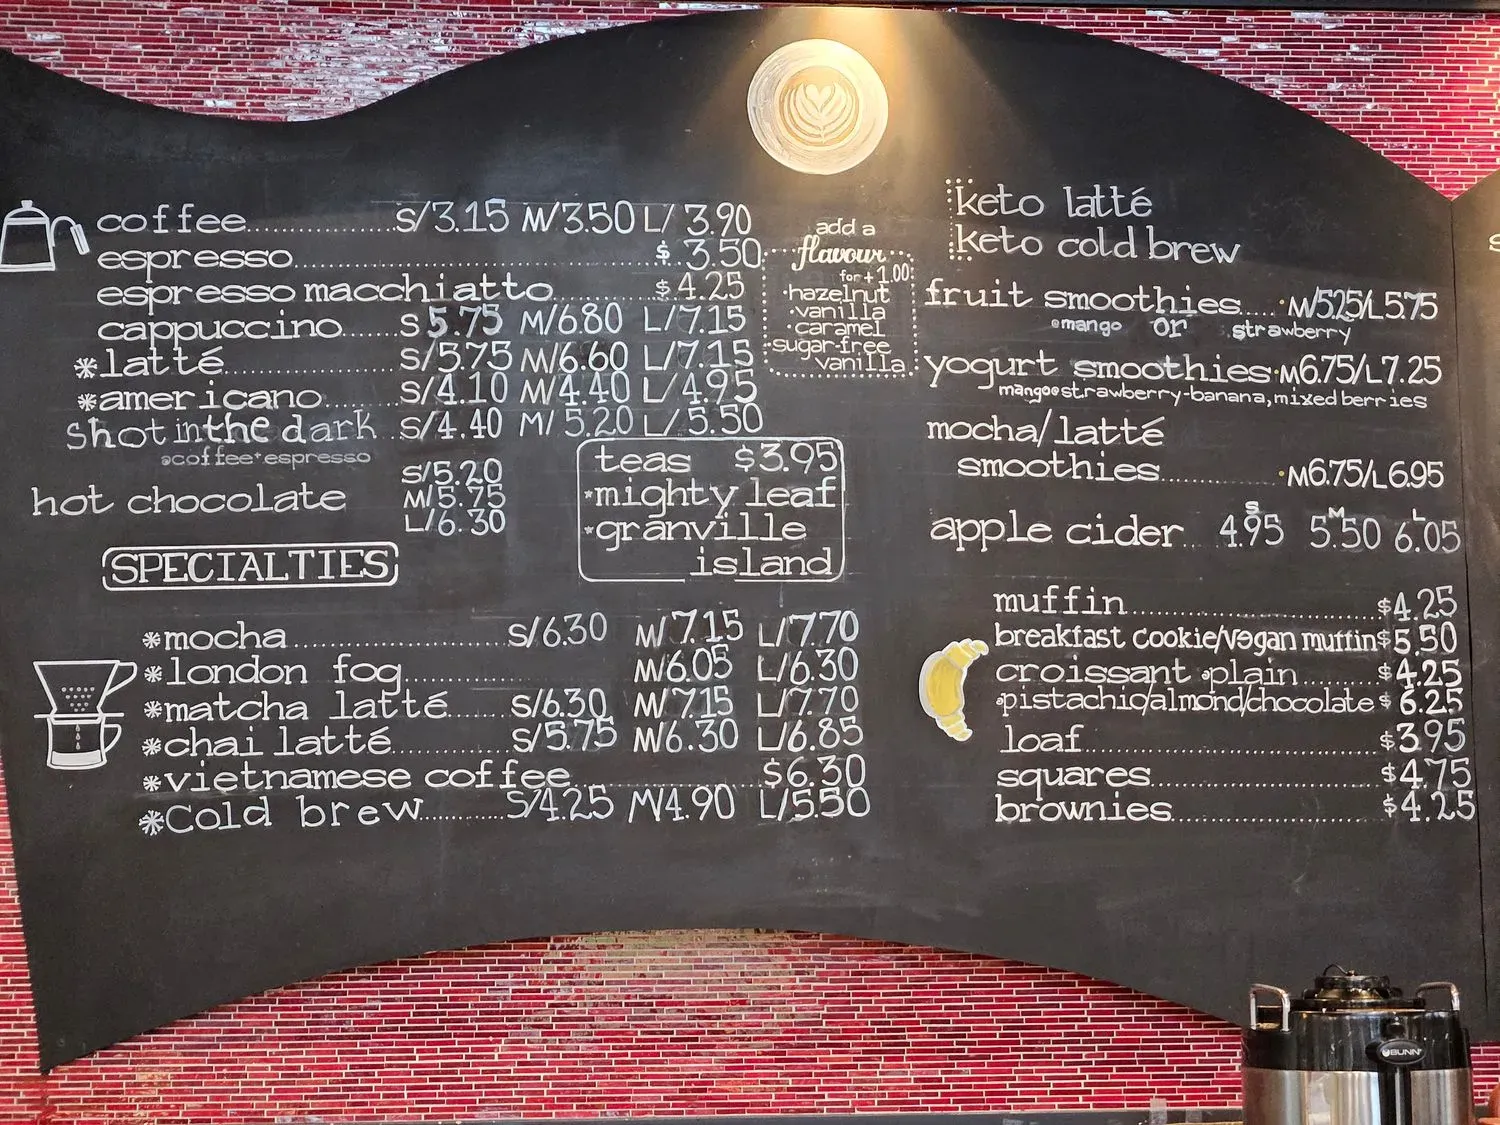 coffee S/3.15 M/3.50 L/3.90
espresso $3.50
espresso macchiatto $4.25
cappuccino S 5.75 M/6.80 L/7.15
*latté S/5.75 M/6.60 L/7.15
*americano S/4.10 M/4.40 L/4.95
Shot in the dark S/4.40 M/5.20 L/5.50
coffee+espresso
hot chocolate S/5.20
M/5.75
L/6.30
add a
flavour
for +1.00
·hazelnut
·vanilla
·caramel
·sugar-free
vanilla
teas $3.95
*mighty leaf
*granville
island
SPECIALTIES
*mocha S/6.30 M/7.15 L/7.70
*london fog M/6.05 L/6.30
*matcha latté S/6.30 M/7.15 L/7.70
*chai latté S/5.75 M/6.30 L/6.85
*vietnamese coffee $6.30
*Cold brew S/4.25 M/4.90 L/5.50
keto latté
keto cold brew
fruit smoothies M/5.25/L5.75
mango or strawberry
yogurt smoothies M6.75/L7.25
mango strawberry-banana, mixed berries
mocha/latté
smoothies M6.75/L6.95
S M L
apple cider 4.95 5.50 6.05
muffin $4.25
breakfast cookie/vegan muffin $5.50
croissant plain $4.25
pistachio/almond/chocolate $6.25
loaf $3.95
squares $4.75
brownies $4.25
BUNN